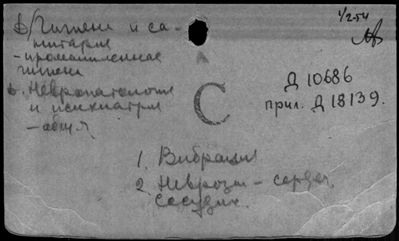 1/2-54
Гигиена и са-
нитария
- промышленная
гигиена
Невропатология
и психиатрия
- общ.
С
Д 10686
прил. Д 18139.
1. Вибрация
2. Неврозы - сердеч.
сосудист.